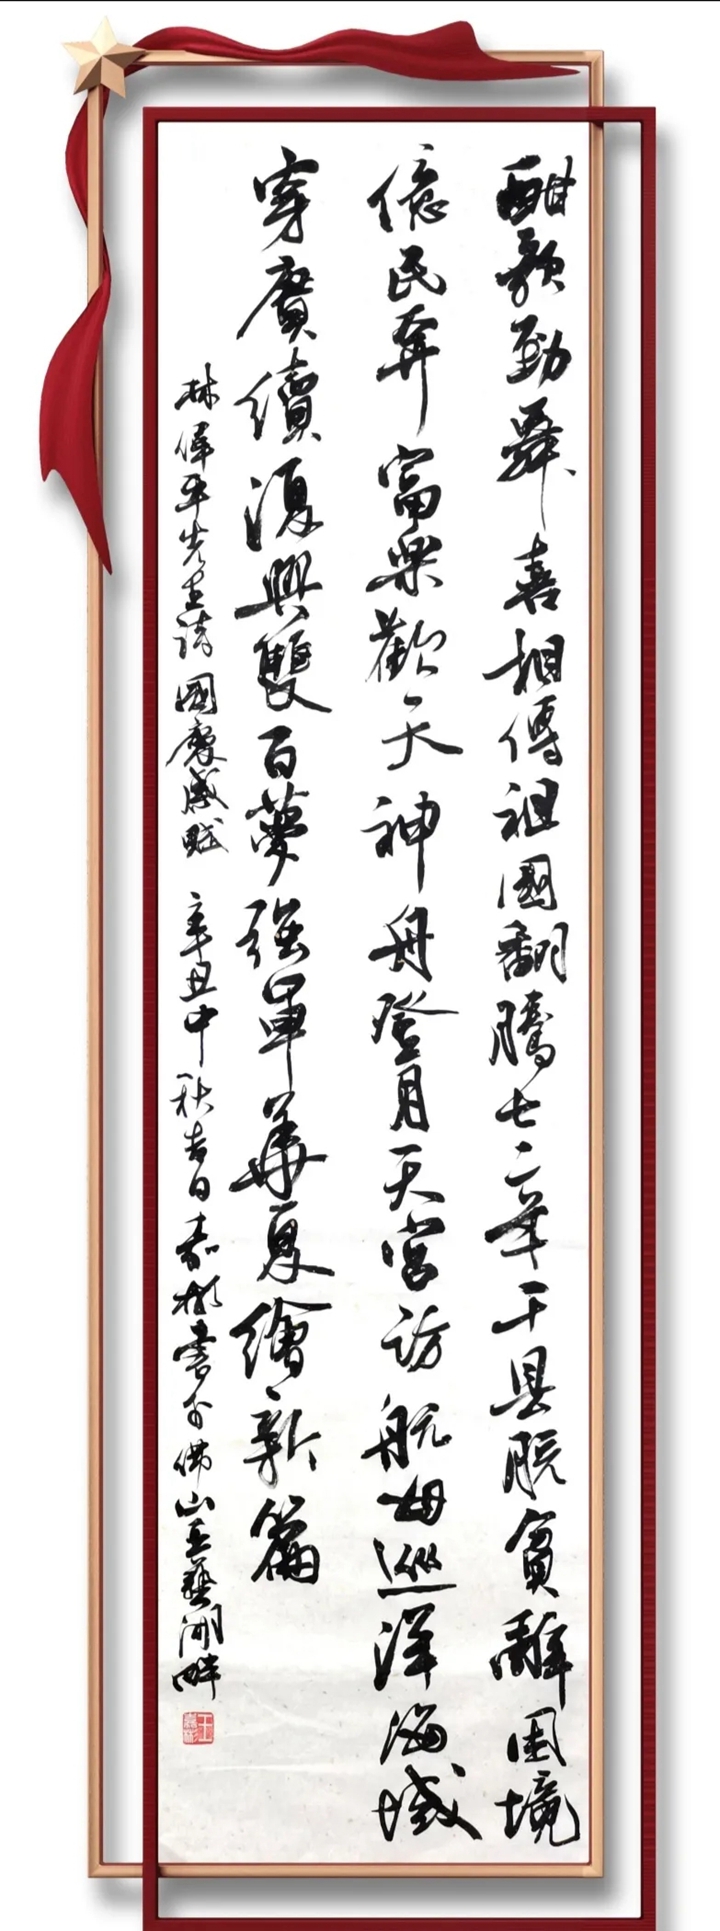 酣歌勁舞喜相傳祖國翻騰七二年千县脱貧離困境
億民奔富樂歡天神舟登月天宫訪航母巡洋海域
穿賡續復興雙百夢强軍華夏繪新篇
林偉平先生詩國慶感賦 辛丑中秋吉日嘉彬書于佛山亞藝湖畔